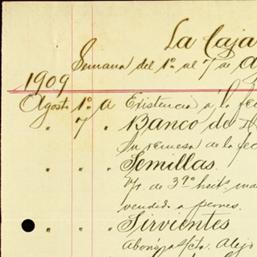 La Caja
Semana del 1º al 7 de A
1909
Agosto 1º a Existencia a la fec
" 7 " Banco de
Su remesa de la fec
" " " Semillas
de 3º hect.
vendido a peones.
" " " Sirvientes
Abonº s/cta. Alej